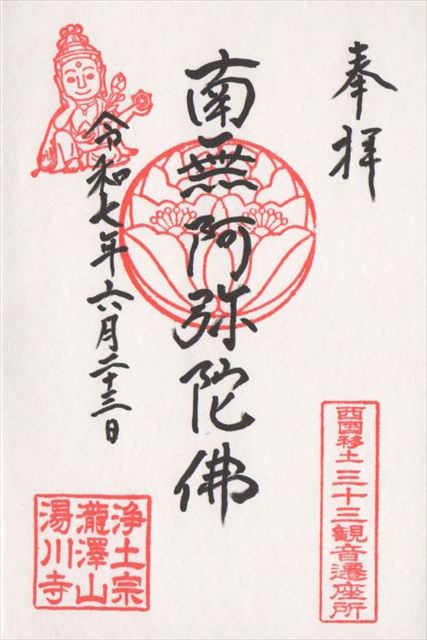 奉拝
西国移土三十三観音遷座所
南無阿弥陀佛
令和七年六月二十三日
浄土宗
瀧澤山
湯川寺